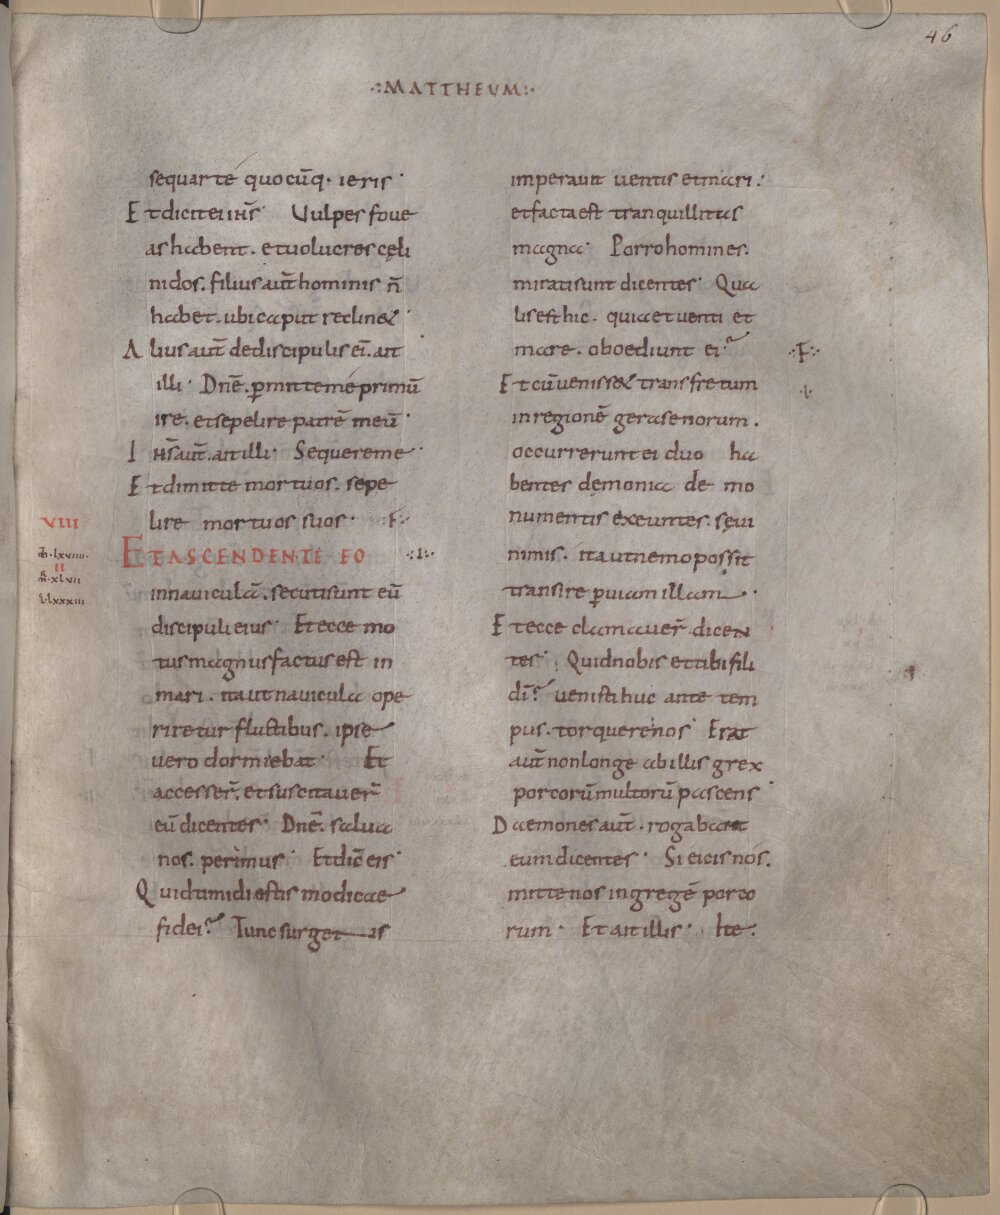 46
·:MATTHEVM:·
sequar te quocūq· ieris·
Et dicit ei ihs̄· Vulpes foue
as habent· et uolucres cęli
nidos· filius aūt hominis n̄
habet· ubi caput reclinet·
Alius aūt de discipulis ei· ait
illi· Dnē· ꝑmitte me primū
ire· et sepelire patrē meū·
Ihs̄ aūt· ait illi· Sequere me·
Et dimitte mortuos· sepe
lire mortuos suos· :F·
VIII
ET ASCENDENTE EO ·:I:·
lxviiii·
II
m̄·xlvii
l·lxxxiii
in nauiculā· secuti sunt eū
discipuli eius· Et ecce mo
tus magnus factus est in
mari· ita ut nauicula ope
riretur fluctibus· ipse
uero dormiebat· Et
accesser̄· et suscitauer̄
eū dicentes· Dnē· salua
nos· perimus· Et dic̄ eis·
Quid timidi estis modicae
fidei? Tunc surgens
imperauit uentis et mari·
et facta est tranquillitas
magna· Porro homines·
mirati sunt dicentes· Qua
lis est hic· quia et uenti et
mare· oboediunt ei? ·:F:·
Et cū uenisset trans fretum ·I·
in regionē gerasenorum·
occurrerunt ei duo ha
bentes dęmonia de mo
numentis exeuntes· sęui
nimis· ita ut nemo possit
transire ꝑ uiam illam·
Et ecce clamauer̄ dicen
tes· Quid nobis et tibi fili
dī? uenisti huc ante tem
pus· torquere nos· Erat
aūt non longe ab illis grex
porcorū multorū pascens·
Daemones aūt· rogabant
eum dicentes· Si eicis nos·
mitte nos in gregē porco
rum· Et ait illis· Ite·